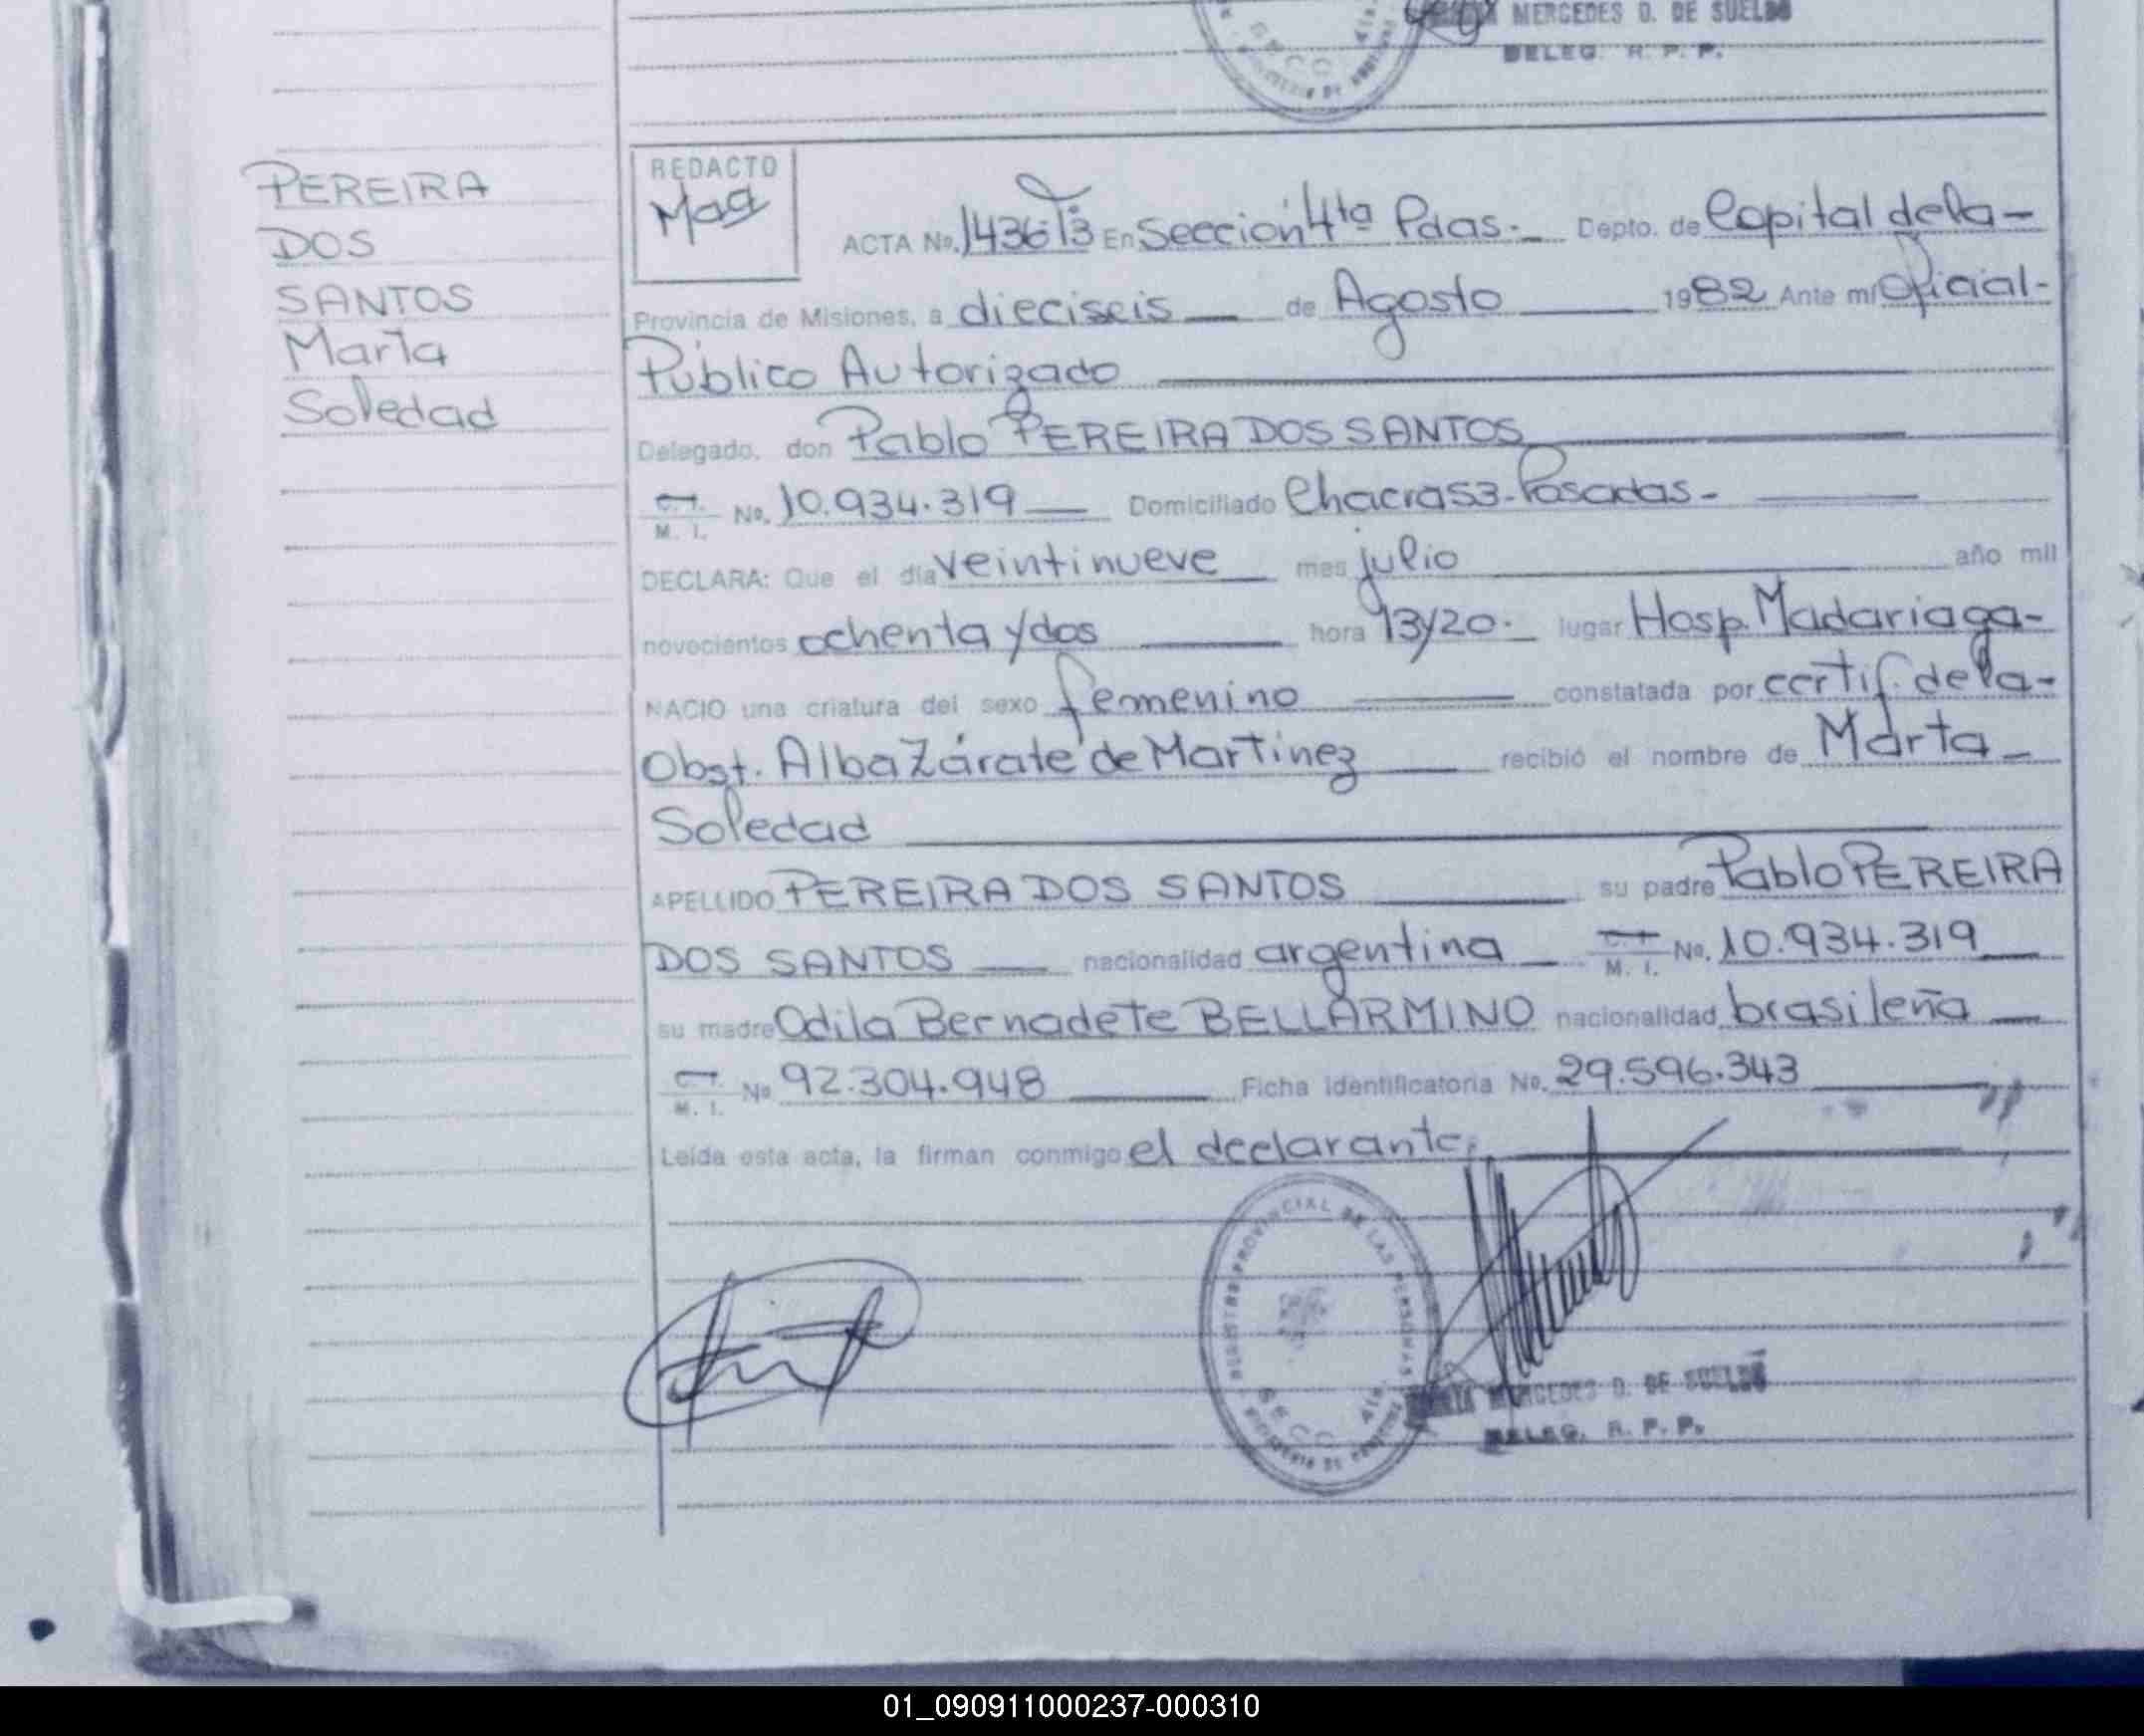 MERCEDES D. DE SUELDO
DELEG. R. P. P.
SECC. 4ta.
PEREIRA
DOS
SANTOS
Marta
Soledad
REDACTO
ACTA No. En Sección 4ta Pdas.- Depto. de Capital de la-
Provincia de Misiones, a dieciseis de Agosto 1982 Ante mí Oficial-
Público Autorizado
Delegado, don Pablo PEREIRA DOS SANTOS
C.I. M. I. No. 10.934.319 Domiciliado Chacra 53-Posadas-
DECLARA: Que el día veintinueve mes julio año mil
novecientos ochenta y dos hora 13y20.- lugar Hosp. Madariaga-
NACIO una criatura del sexo femenino constatada por certif. de la-
Obst. Alba Zárate de Martinez recibió el nombre de Marta
Soledad
APELLIDO PEREIRA DOS SANTOS su padre Pablo PEREIRA
DOS SANTOS nacionalidad argentina C.I. M. I. No. 10.934.319
su madre Odila Bernadete BELLARMINO nacionalidad brasileña
C.I. M. I. No 92.304.948 Ficha identificatoria No. 29.596.343
Leída esta acta, la firman conmigo el declarante,
REGISTRO PROVINCIAL DE LAS PERSONAS
SECC. 4ta.
MERCEDES D. DE SUELDO
DELEG. R. P. P.
01_090911000237-000310